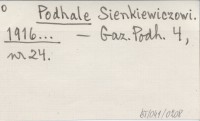 Podhale Sienkiewiczowi.
1916... — Gaz. Podh. 4,
nr 24.